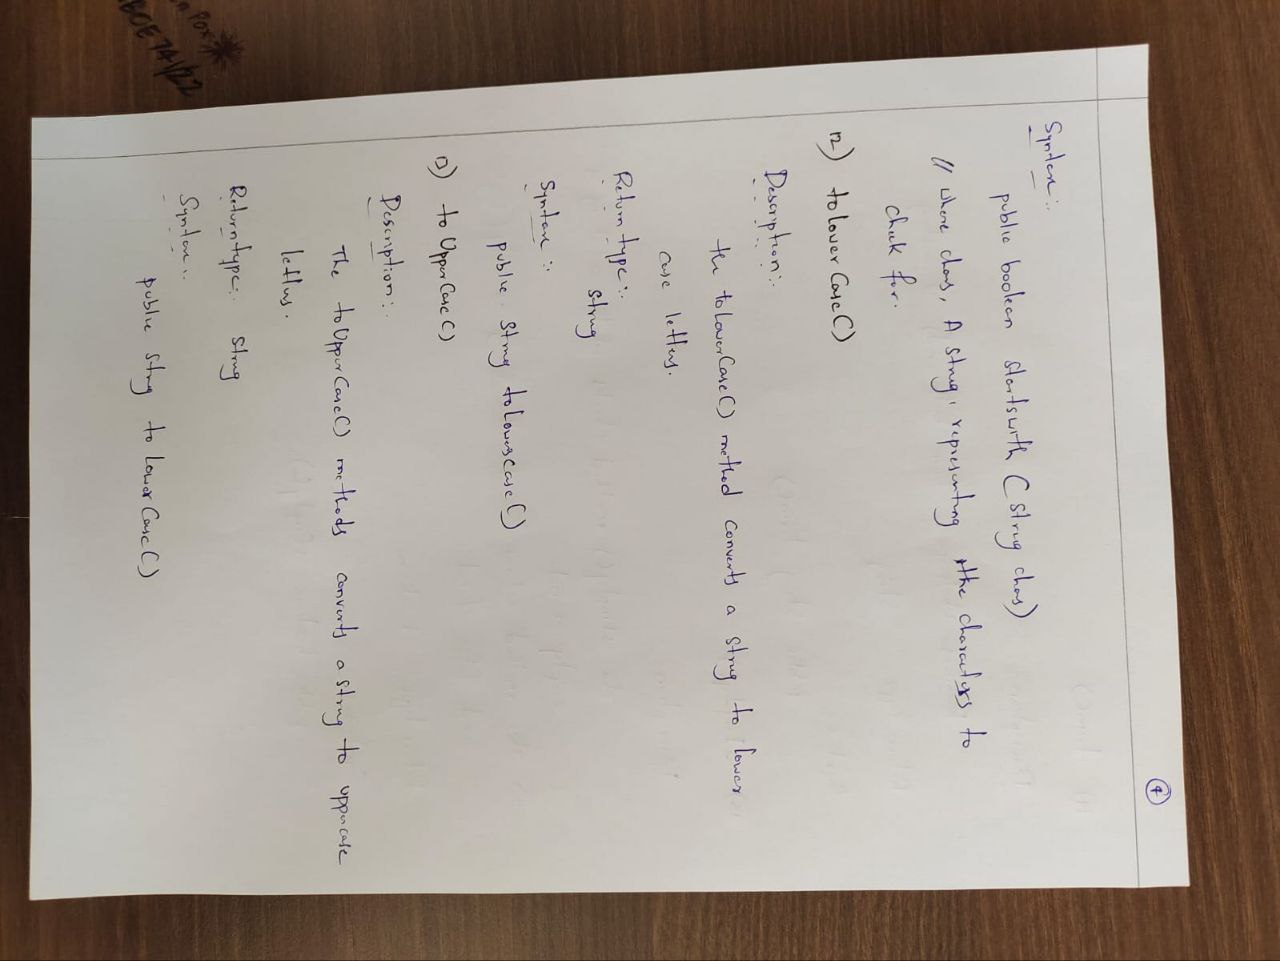 ④
Syntax:.
public boolean startswith (String chars)
// where chars, A string, representing the characters to
check for.
12) toLowerCase()
Description:.
the toLowerCase() method converts a string to lower
case letters.
Return type:.
string
Syntax:.
public string toLowerCase()
toUpperCase()
Description:.
The toUpperCase() methods converts a string to uppercase
letters.
Return type:. string
Syntax:.
public string to LowerCase()
Box
BOE 74/22